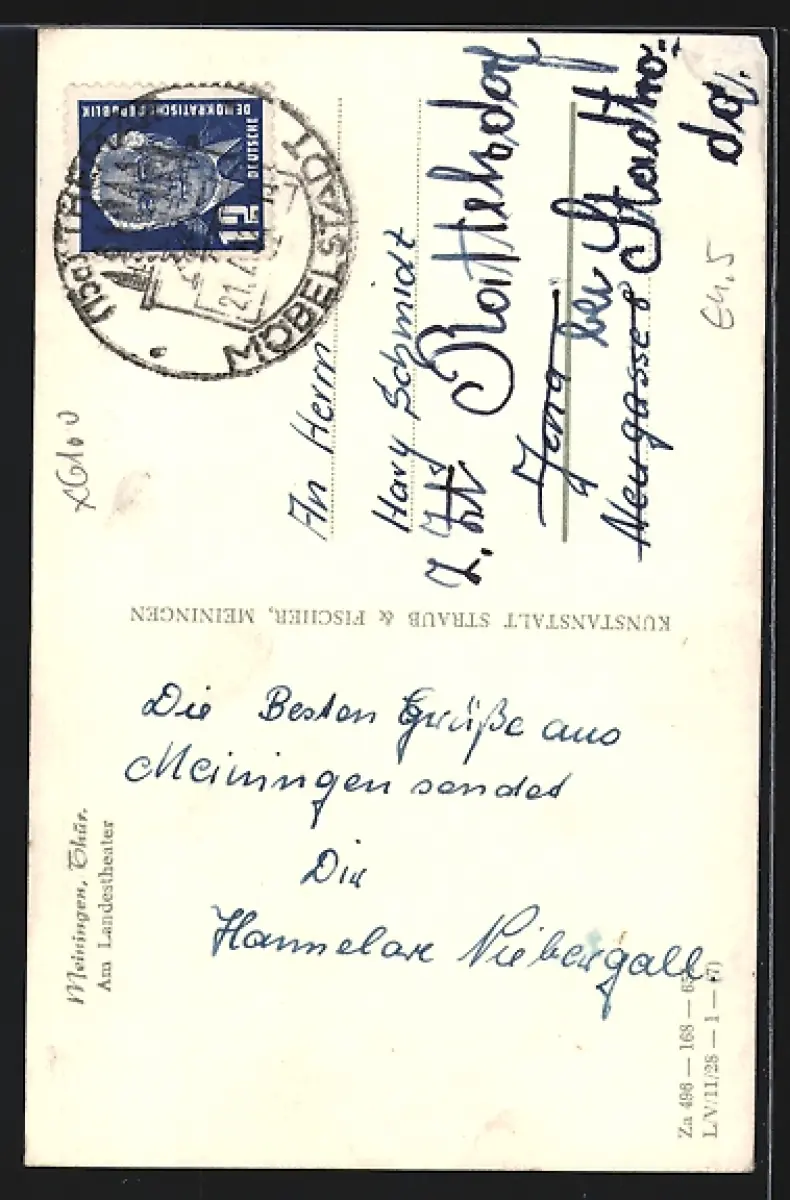 DEUTSCHE
DEMOKRATISCHE REPUBLIK
12
MÖBELSTADT
An Herrn
Hary Schmidt
z. Zt.
Jena
bei Stadtro-
da.
Neugasse 8
64.5
XG100
KUNSTANSTALT STRAUB & FISCHER, MEININGEN
Die Besten Grüße aus
Meiningen sendet
Die
Hannelore Niebergall.
Meiningen, Thür.
Am Landestheater
Za 498 — 168 —
L/V/11/28 — 1 —